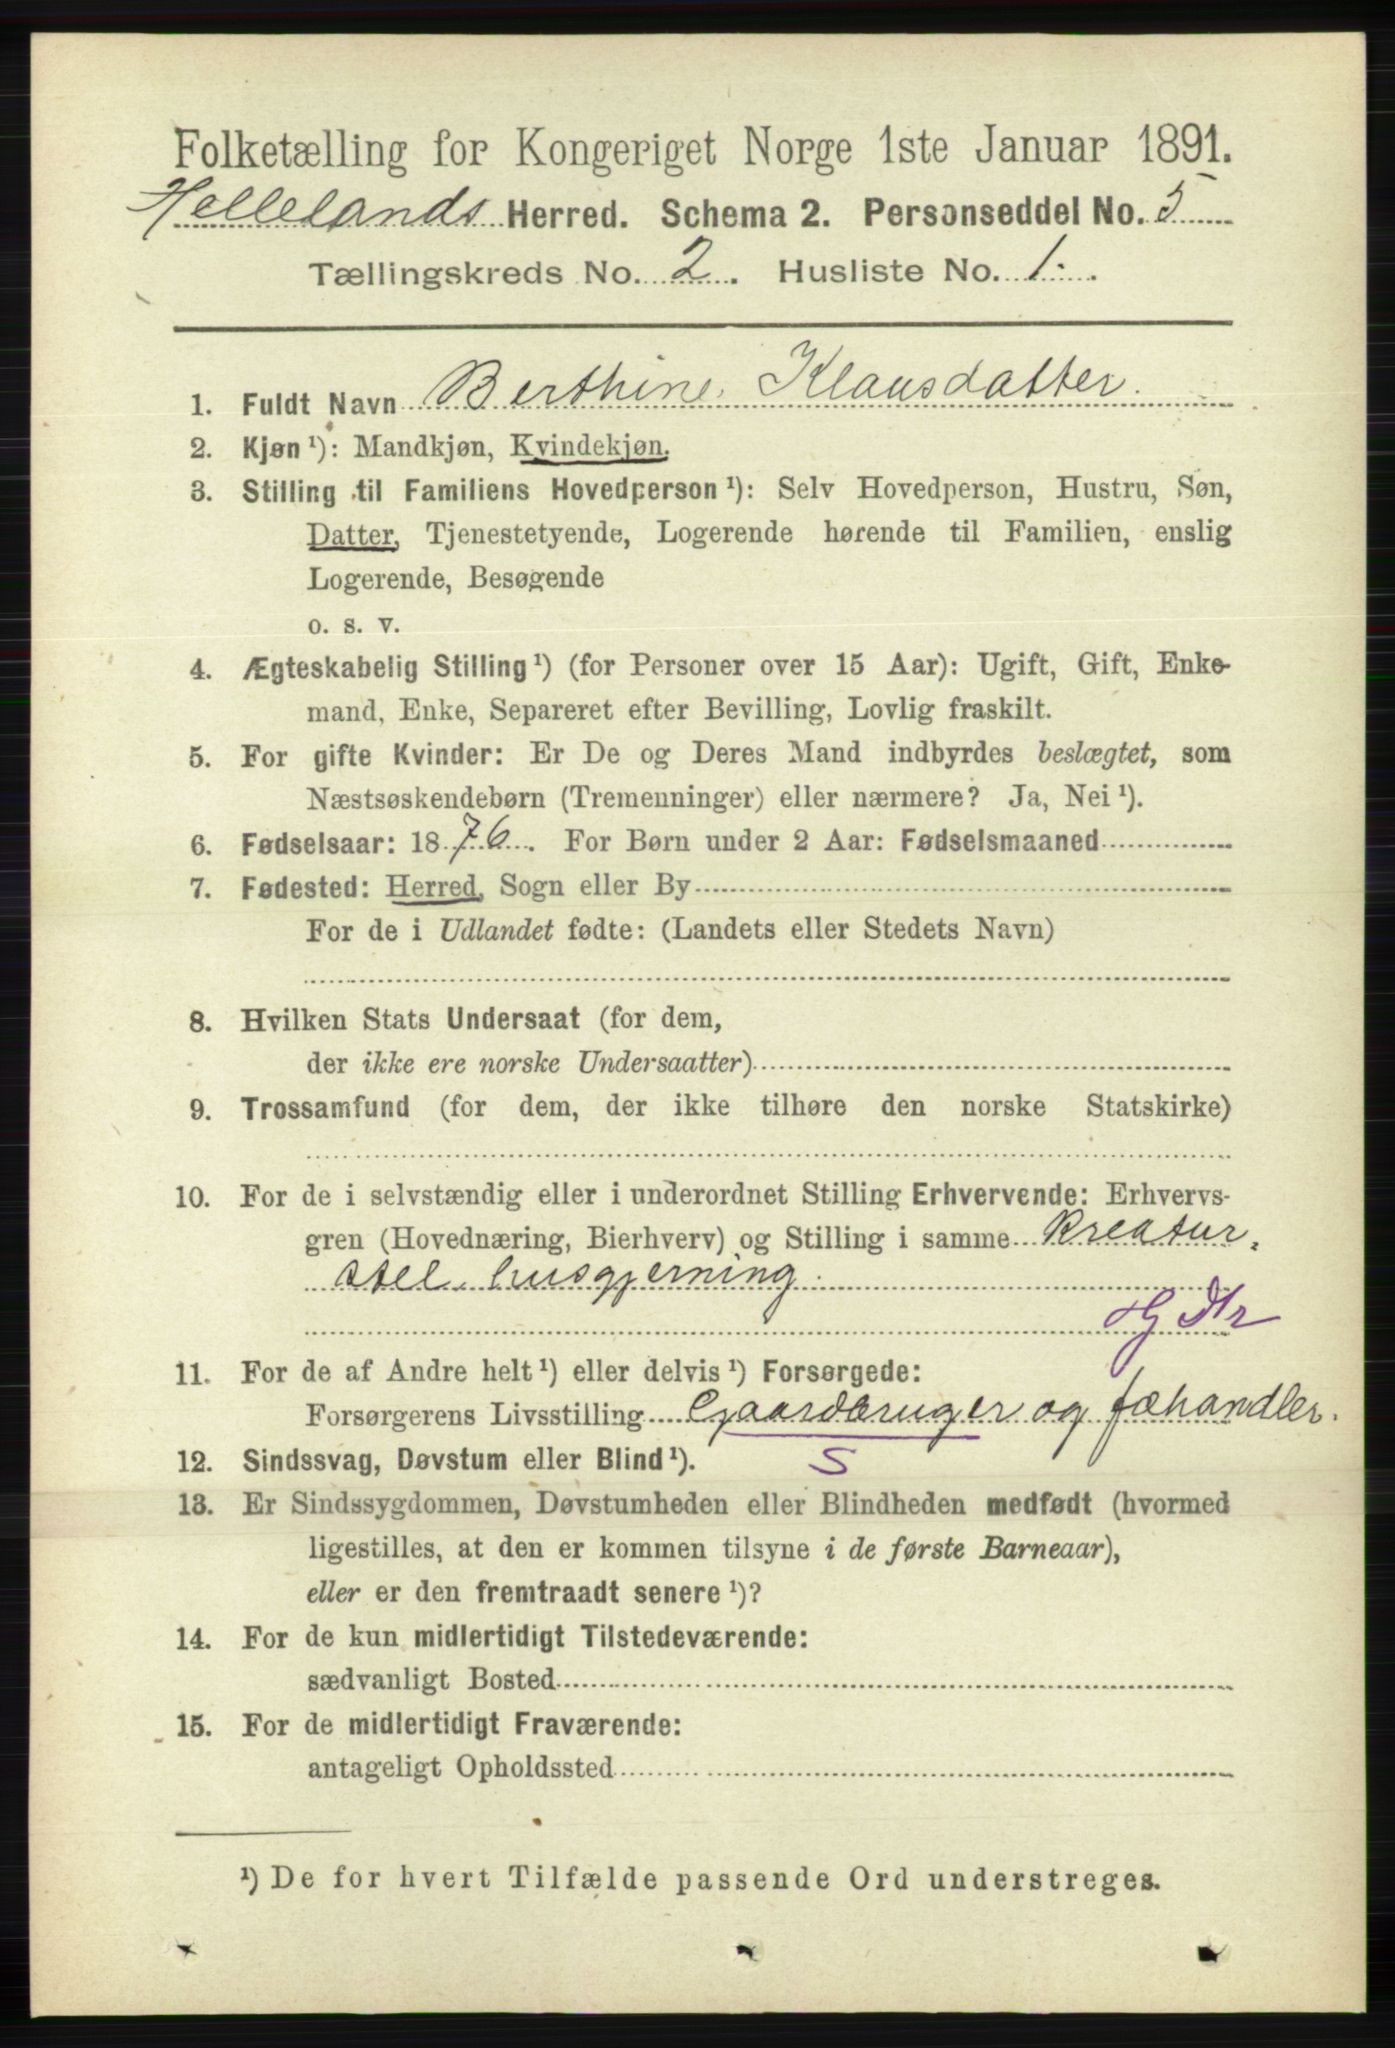 Folketælling for Kongeriget Norge 1ste Januar 1891.
Hellelands Herred. Schema 2. Personseddel No. 5
Tællingskreds No. 2. Husliste No. 1.
1. Fuldt Navn Berthine Klausdatter.
2. Kjøn ¹): Mandkjøn, Kvindekjøn.
3. Stilling til Familiens Hovedperson ¹): Selv Hovedperson, Hustru, Søn,
Datter, Tjenestetyende, Logerende hørende til Familien, enslig
Logerende, Besøgende
o. s. v.
4. Ægteskabelig Stilling ¹) (for Personer over 15 Aar): Ugift, Gift, Enke-
mand, Enke, Separeret efter Bevilling, Lovlig fraskilt.
5. For gifte Kvinder: Er De og Deres Mand indbyrdes beslægtet, som
Næstsøskendebørn (Tremenninger) eller nærmere? Ja, Nei ¹).
6. Fødselsaar: 1876. For Børn under 2 Aar: Fødselsmaaned
7. Fødested: Herred, Sogn eller By
For de i Udlandet fødte: (Landets eller Stedets Navn)
8. Hvilken Stats Undersaat (for dem,
der ikke ere norske Undersaatter)
9. Trossamfund (for dem, der ikke tilhøre den norske Statskirke)
10. For de i selvstændig eller i underordnet Stilling Erhvervende: Erhvervs-
gren (Hovednæring, Bierhverv) og Stilling i samme Kreatur,
stel, husgjerning.
11. For de af Andre helt ¹) eller delvis ¹) Forsørgede:
Forsørgerens Livsstilling Gaardbruger og fæhandler.
12. Sindssvag, Døvstum eller Blind ¹). S
13. Er Sindssygdommen, Døvstumheden eller Blindheden medfødt (hvormed
ligestilles, at den er kommen tilsyne i de første Barneaar),
eller er den fremtraadt senere ¹)?
14. For de kun midlertidigt Tilstedeværende:
sædvanligt Bosted
15. For de midlertidigt Fraværende:
antageligt Opholdssted
¹) De for hvert Tilfælde passende Ord understreges.